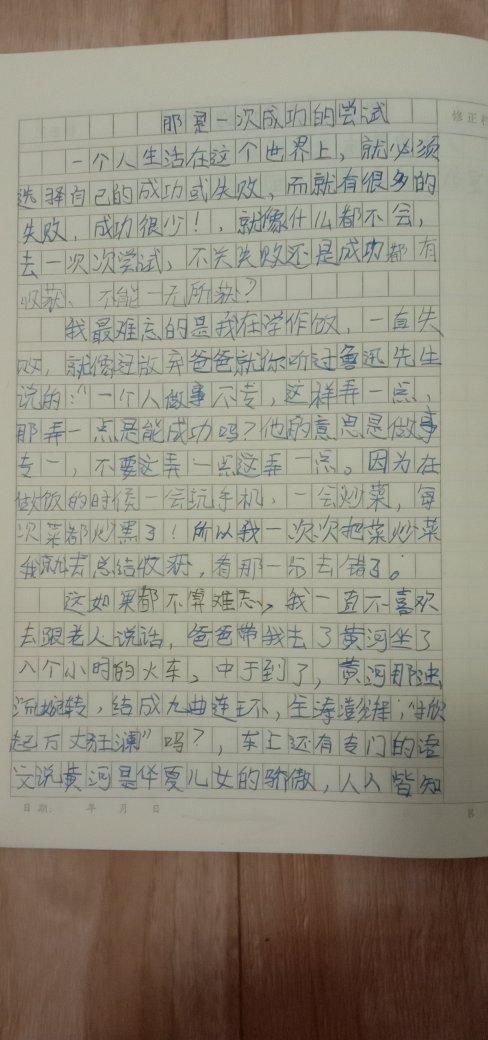 那是一次成功的尝试
修正
一个人生活在这个世界上，就必须
选择自己的成功或失败，而就有很多的
失败，成功很少！，就像什么都不会，
去一次次尝试，不关失败还是成功都有
收获、不能一无所获？
我最难忘的是我在学作饭，一直失
败，就像过放弃爸爸就你听过鲁迅先生
说的："一个人做事不专，这样弄一点，
那弄一点是能成功吗？他的意思是做事
专一，不要这弄一点这弄一点。因为在
做饭的时侯一会玩手机，一会炒菜，每
次菜都炒黑了！所以我一次次把菜炒菜
我就去总结收获，看那一步去错了。
这如果都不算难忘，我一直不喜欢
去跟老人说话，爸爸带我去了黄河坐了
八个小时的火车，中于到了，黄河那浊
流宛转，结成九曲连环，
起万丈狂澜"吗？，车上还有专门的语
文说黄河是华夏儿女的骄傲，人人皆知
日期： 年 月 日
第